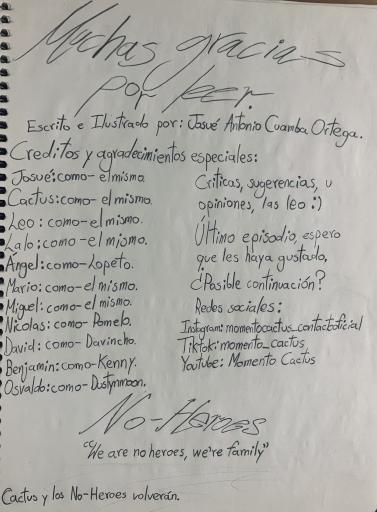 Muchas gracias
por leer.
Escrito e Ilustrado por: Josué Antonio Cuamba Ortega.
Creditos y agradecimientos especiales:
Josué: como- el mismo.
Cactus: como- el mismo.
Leo: como- el mismo.
Lalo: como- el mismo.
Ángel: como- Lopeto.
Mario: como- el mismo.
Miguel: como- el mismo.
Nicolas: como- Pomelo.
David: como- Davincho.
Benjamin: como- Kenny.
Osvaldo: como- Dustynmoon.
Criticas, sugerencias, u
opiniones, las leo :)
Último episodio, espero
que les haya gustado,
¿Posible continuación?
Redes sociales:
Instagram: momentocactus_contactoficial
Tiktok: momento_cactus
Youtube: Momento Cactus
No-Heroes
"We are no heroes, we're family"
Cactus y los No-Heroes volverán.